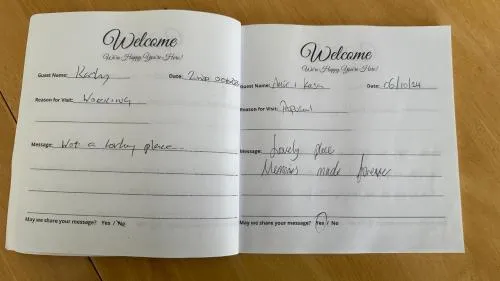 Welcome
We're Happy You're Here!
Guest Name: Kathy Date: 2nd October
Reason for Visit: Working
Message: Wot a lovley place
May we share your message? Yes / No
Welcome
We're Happy You're Here!
Guest Name: Kara Date: 06/10/24
Reason for Visit: Proposal
Message: Lovely place
Memories made forever
May we share your message? Yes / No